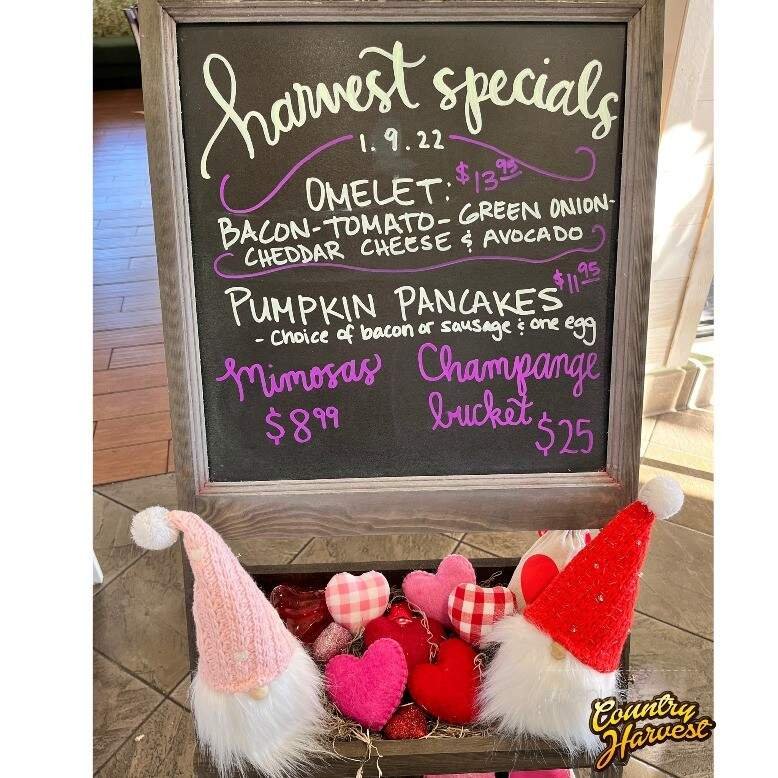 harvest specials
1.9.22
OMELET: $13.95
BACON-TOMATO-GREEN ONION-
CHEDDAR CHEESE & AVOCADO
PUMPKIN PANCAKES $11.95
- Choice of bacon or sausage & one egg
Mimosas
$8.99
Champange
bucket $25
Country
Harvest